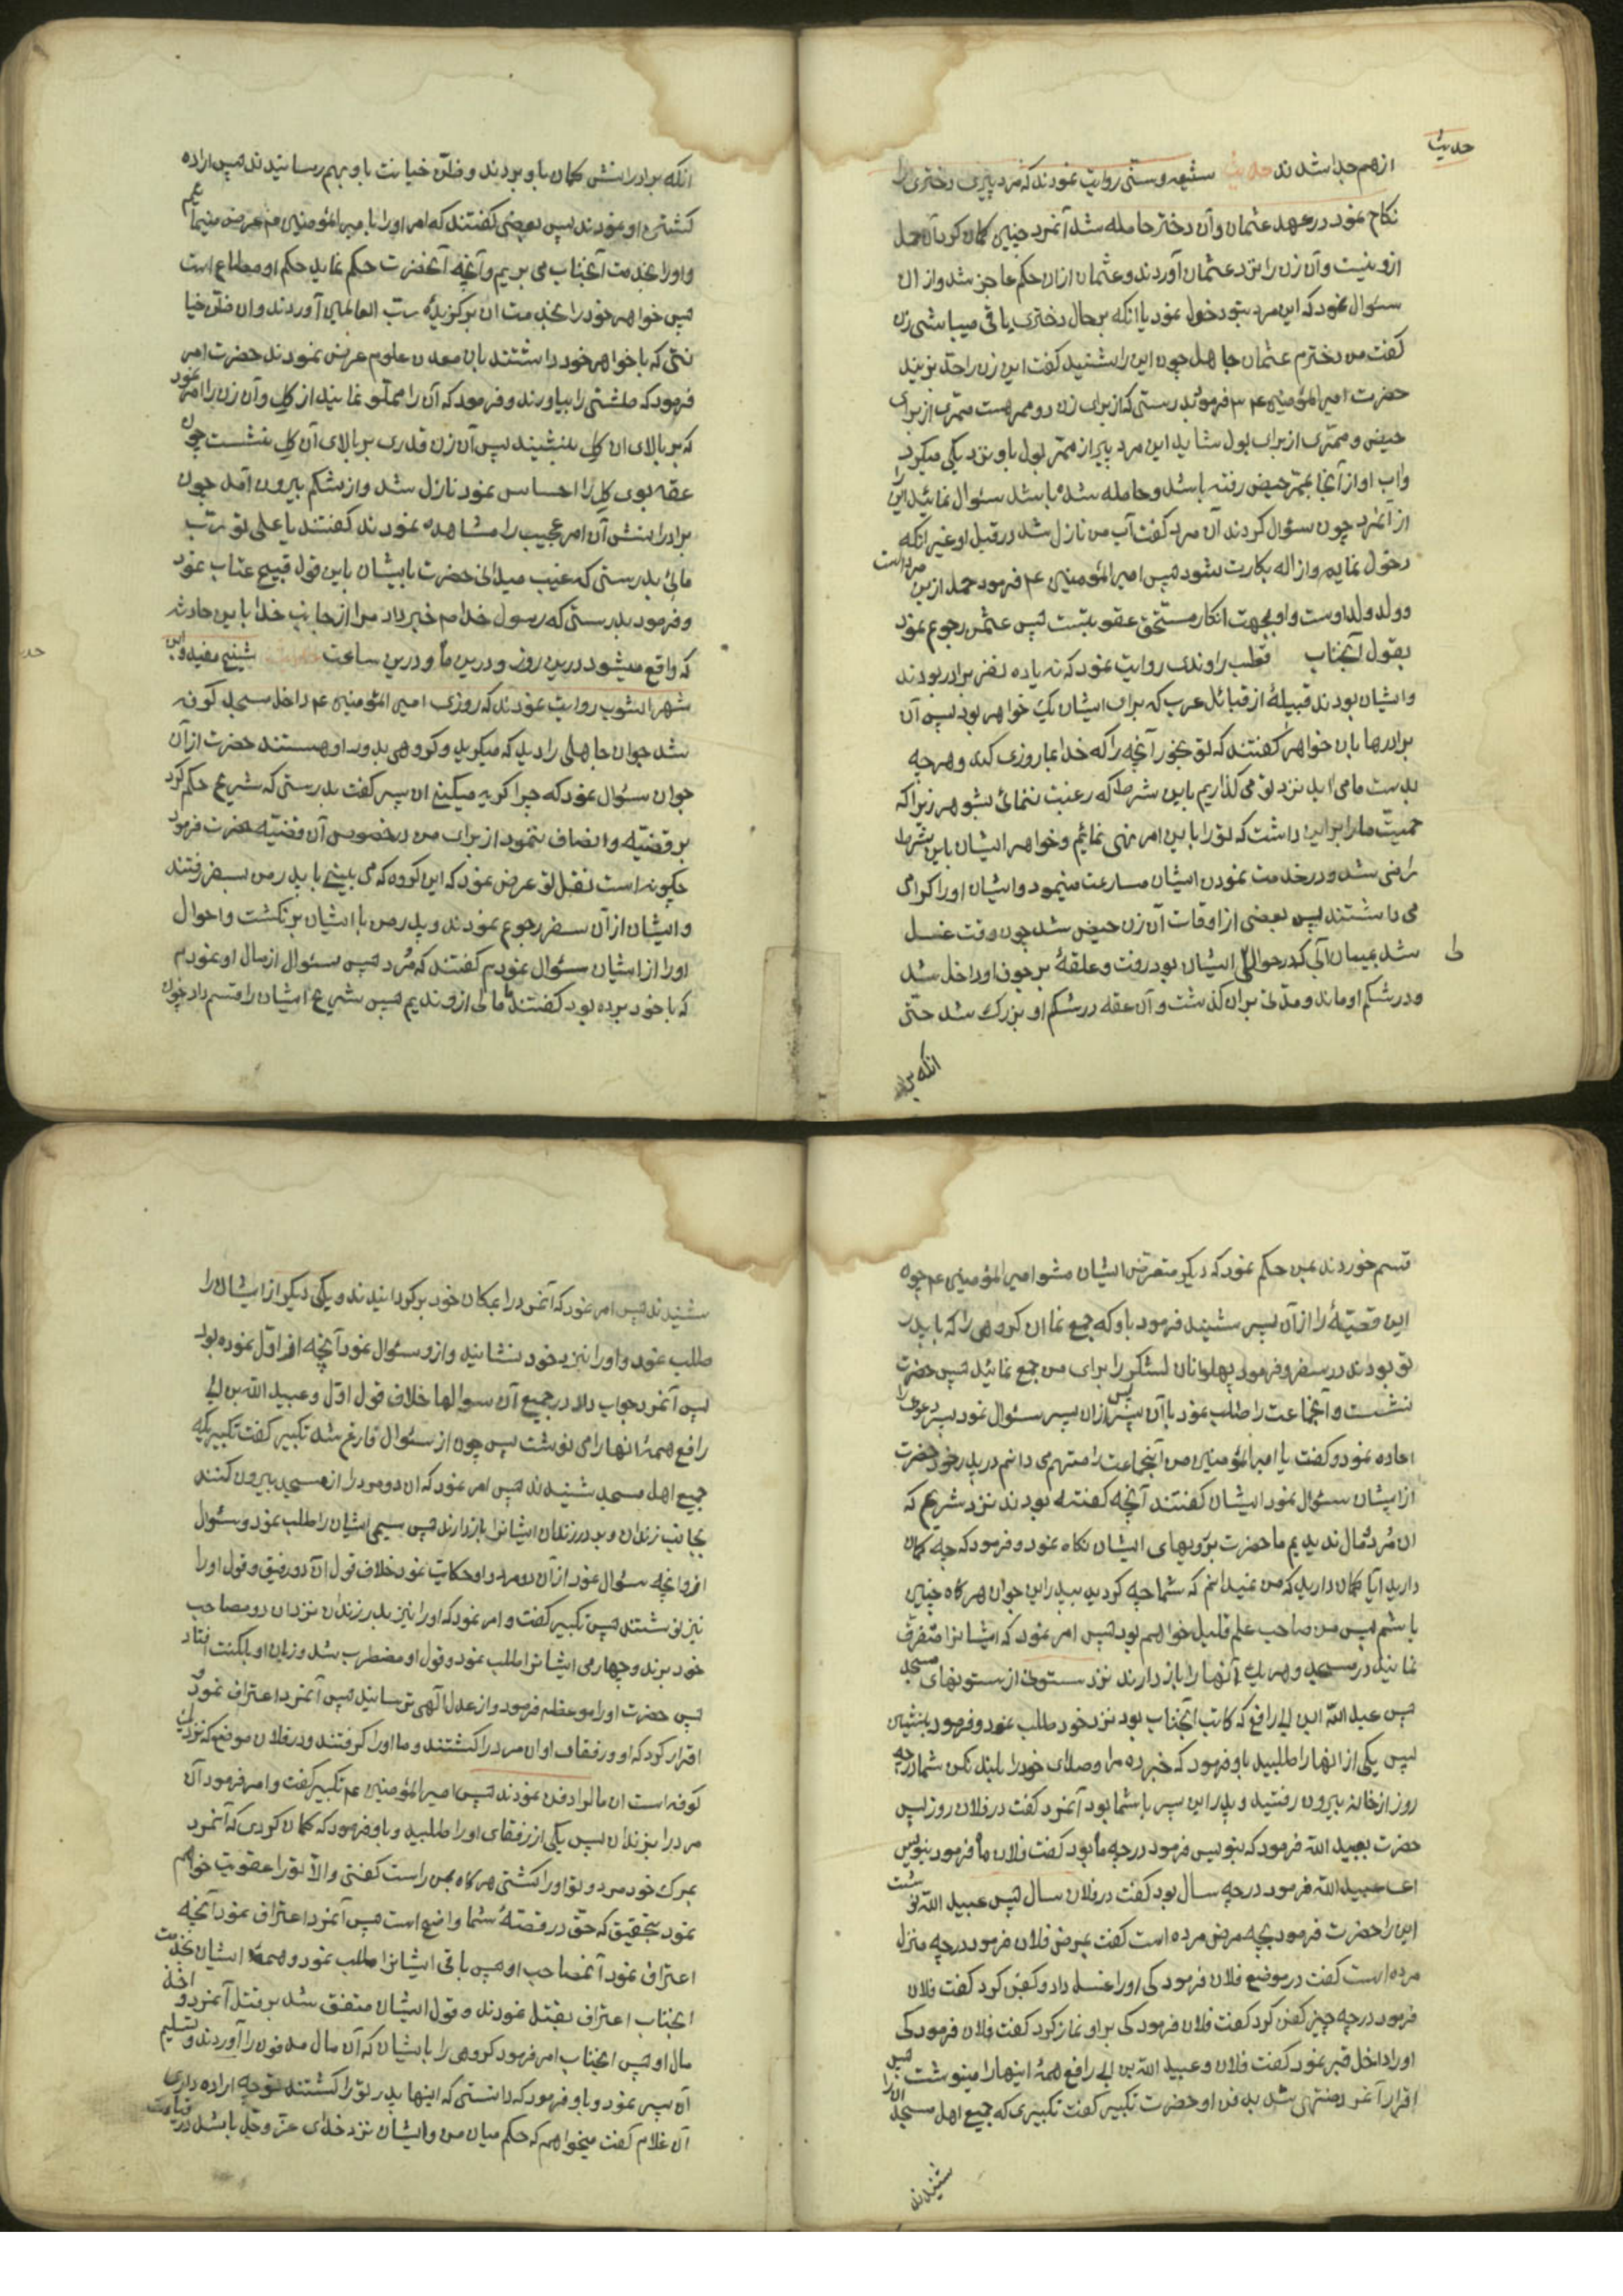 حدیث
ازهم جدا شدند حدیث شیعه و سنّی روایت نمودند که مرد پیری دختری را
نکاح نمود در عهد عثمان و آن دختر حامله شد آنمرد چنین کمان کرد آن حمل
ازو نیست و آن زن را نزد عثمان آوردند و عثمان ازان حکم عاجز شد و از ان
سئوال نمود که این مرد بتو دخول نمود یا انکه بر حال دختری باقی میباشی زن
کفت من دخترم عثمان جاهل چون این را شنید کفت این زن را حد بزنید
حضرت امیر المؤمنین عم فرمود بدرستی که از برای زن دو ممر هست ممّری از برای
حیض و ممّری از برای بول شاید این مرد پیر از ممّر بول باو نزدیکی میکرد
واب او از آنجا بممّر حیض رفته باشد و حامله شده باشد سئوال نمائید این را
از آنمرد چون سئوال کردند آن مرد کفت آب من نازل شد در قبل او غیر انکه
دخول نمایم و ازاله بکارت شود پس امیر المؤمنین عم فرمود حمل ازین مرد است
و ولد ولد اوست و او بجهت انکار مستحق عقوبتست پس عثمن رجوع نمود
بقول آنجناب قطب راوندی روایت نمود که نه یا ده نفر برادر بودند
وایشان بودند قبیلهٔ از قبائل عرب که برای ایشان یک خواهر بود پس آن
برادرها بان خواهر کفتند که تو بخور آنچه را که خدا بما روزی کند و هر چه
بدست ما می اید نزد تو می کذاریم باین شرط که رغبت ننمائی بشوهر زیرا که
حمیّت ما را براین داشت که تو را باین امر نهی نمائیم و خواهر ایشان باین شرط
راضی شد و در خدمت نمودن ایشان مسارعت مینمود و ایشان او را کرامی
می داشتند پس بعضی از اوقات آن زن حیض شد چون وقت غسل
شد بمیان آبی که در حوالی ایشان بود رفت و علقهٔ بر جوف او داخل شد
و در شکم او ماند و مدّتی بران کذشت و آن علقه در شکم او بزرک شد حتّی
انکه برادر
انکه برادرانش کمان باو بردند و ظنّ خیانت باو بهم رسانیدند پس اراده
کشتن او نمودند پس بعضی کفتند که امر او را با میر المؤمنین عم عرض مینمائیم
و او را بخدمت آنجناب می بریم و آنچه آنحضرت حکم نماید حکم او مطاع است
پس خواهر خود را بخدمت ان برکزیدهٔ ربّ العالمین آوردند و ان ظنّ خیا
نتی که با خواهر خود داشتند بان معدن علوم عرض نمودند حضرت امر
فرمود که طشتی را بیاورند و فرمود که آن را مملّو نمایند از کل و آن زن را امر نمود
که بر بالای ان کل بنشیند پس آن زن قدری بر بالای آن کل نشست چون
علقه بوی کل را احساس نمود نازل شد و از شکم بیرون آمد چون
برادرانش آن امر عجیب را مشاهده نمودند کفتند یا علی تو ربّ
مائی بدرستی که غیب میدانی حضرت بایشان باین قول قبیح عتاب نمود
و فرمود بدرستی که رسول خدا ص خبر داد مرا از جانب خدا باین حادثه
که واقع میشود درین روز و درین ماه و درین ساعت حدیث شیخ مفید و ابن
شهر اشوب روایت نمودند که روزی امیر المؤمنین عم داخل مسجد کوفه
شد جوان جاهلی را دید که میکرید و کروهی بدور او هستند حضرت از آن
جوان سئوال نمود که چرا کریه میکنی ان پسر کفت بدرستی که شریح حکم کرد
بر قضیّه و انصاف ننمود از برای من در خصوص آن قضیّه حضرت فرمود
چکونه است نقل تو عرض نمود که این کروه که می بینی با پدر من بسفر رفتند
و ایشان از آن سفر رجوع نمودند و پدر من با ایشان برنکشت و احوال
او را از ایشان سئوال نمودم کفتند که مُرد پس سئوال از مال او نمودم
که با خود برده بود کفتند ما مالی ازو ندیدیم پس شریح ایشان را قسم داد چون
قسم خوردند بمن حکم نمود که دیکر متعرض ایشان مشو امیر المؤمنین عم چون
این قضیّهٔ را از آن پسر شنید فرمود باو که جمع نما ان کروهی را که با پدر
تو بودند در سفر و فرمود پهلوانان لشکر را برای من جمع نمائید پس حضرت
نشست و آنجماعت را طلب نمود با آن پسر پس ازان پسر سئوال نمود پسر دعوی را
اعاده نمود و کفت یا امیر المؤمنین من آنجماعت را متهم می دانم در پدر خود حضرت
از ایشان سئوال نمود ایشان کفتند آنچه کفته بودند نزد شریح که
ان مُرد و مال ندیدیم ما حضرت برویهای ایشان نکاه نمود و فرمود که چه کمان
دارید آیا کمان دارید که من نمیدانم که شما چه کردید بپدر این جوان هر کاه چنین
باشم پس من صاحب علم قلیل خواهم بود پس امر نمود که ایشانرا متفرق
نمائید در مسجد و هر یک آنها را باز دارند نزد ستونی از ستونهای مسجد
پس عبید اللّه ابن ابی رافع که کاتب آنجناب بود نزد خود طلب نمود و فرمود بنشین
پس یکی از انها را طلبید باو فرمود که خبر ده مرا و صدای خود را بلند نکن شما در چه
روز از خانه بیرون رفتید و پدر این پسر با شما بود آنمرد کفت در فلان روز پس
حضرت بعبید اللّه فرمود که بنویس فرمود در چه ماه بود کفت فلان ماه فرمود بنویس
ای عبید اللّه فرمود در چه سال بود کفت در فلان سال پس عبید اللّه نوشت
این را حضرت فرمود بچه مرض مرده است کفت بمرض فلان فرمود در چه منزل
مرده است کفت در موضع فلان فرمود کی او را غسل داد و کفن کرد کفت فلان
فرمود در چه چیز کفن کرد کفت فلان فرمود کی بر او نماز کرد کفت فلان فرمود کی
او را داخل قبر نمود کفت فلان و عبید اللّه بن ابی رافع همهٔ اینها را مینوشت پس
اقرار آنمرد منتهی شد بدفن او حضرت تکبیر کفت تکبیری که جمیع اهل مسجد ان را
شنیدند
شنیدند پس امر نمود که آنمرد را بمکان خود برکردانیدند و یکی دیکر از ایشان را
طلب نمود و او را نزد خود نشانید و ازو سئوال نمود آنچه از اوّل نموده بود
پس آنمرد جواب داد در جمیع آن سوالها خلاف قول اوّل و عبید اللّه بن ابی
رافع همهٔ انها را می نوشت پس چون از سئوال فارغ شد تکبیر کفت تکبیریکه
جمیع اهل مسجد شنیدند پس امر نمود که ان دو مرد را از مسجد بیرون کنند
بجانب زندان و بدر زندان ایشانرا باز دارند پس سیمی ایشان را طلب نمود و سئوال
ازو انچه سئوال نمود از آن دو مرد و او حکایت نمود خلاف قول آن دو رفیق و قول او را
نیز نوشتند پس تکبیر کفت و امر نمود که او را نیز بدر زندان نزد ان دو مصاحب
خود برند و چهارمی ایشانرا طلب نمود و قول او مضطرب شد و زبان او بلکنت افتاد
پس حضرت او را موعظه فرمود و از عدل الٓهی ترسانید پس آنمرد اعتراف نمود و
اقرار کرد که او و رفقای او ان مرد را کشتند و ما او را کرفتند و در فلان موضع که نزدیک
کوفه است ان مال را دفن نمودند پس امیر المؤمنین عم تکبیر کفت و امر فرمود آن
مرد را بزندان پس یکی از رفقای او را طلبید و باو فرمود که کمان کردی که آنمرد
بمرک خود مرد و تو او را کشتی هر کاه بمن راست کفتی والّا تو را عقوبت خواهم
نمود بتحقیق که حقّ در قصهٔ شما واضح است پس آنمرد اعتراف نمود آنچه
اعتراف نمود آنمصاحب او پس باقی ایشانرا طلب نمود و همهٔ ایشان بخدمت
آنجناب اعتراف بقتل نمودند و قول ایشان متفق شد بر قتل آنمرد و اخذ
مال او پس آنجناب امر فرمود کروهی را با ایشان که آن مال مدفون را آوردند و تسلیم
آن پسر نمود و باو فرمود که دانستی که اینها پدر تو را کشتند تو چه اراده داری
آن غلام کفت میخواهم که حکم میان من و ایشان نزد خدای عزّ و جلّ باشد در قیامت